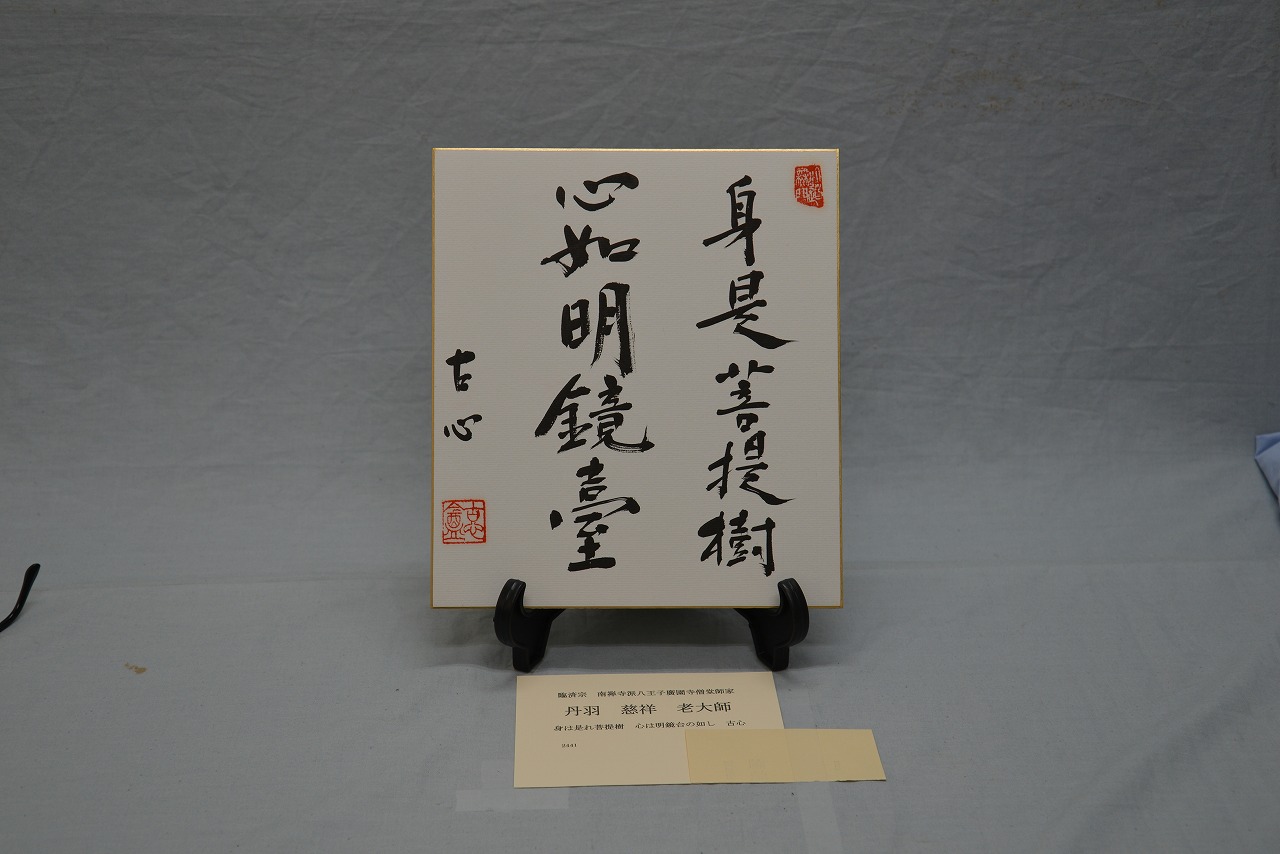 身是菩提樹
心如明鏡臺
古心
臨済宗　南禅寺派八王子廣園寺僧堂師家
丹羽　慈祥　老大師
身は是れ菩提樹　心は明鏡台の如し　古心
2441